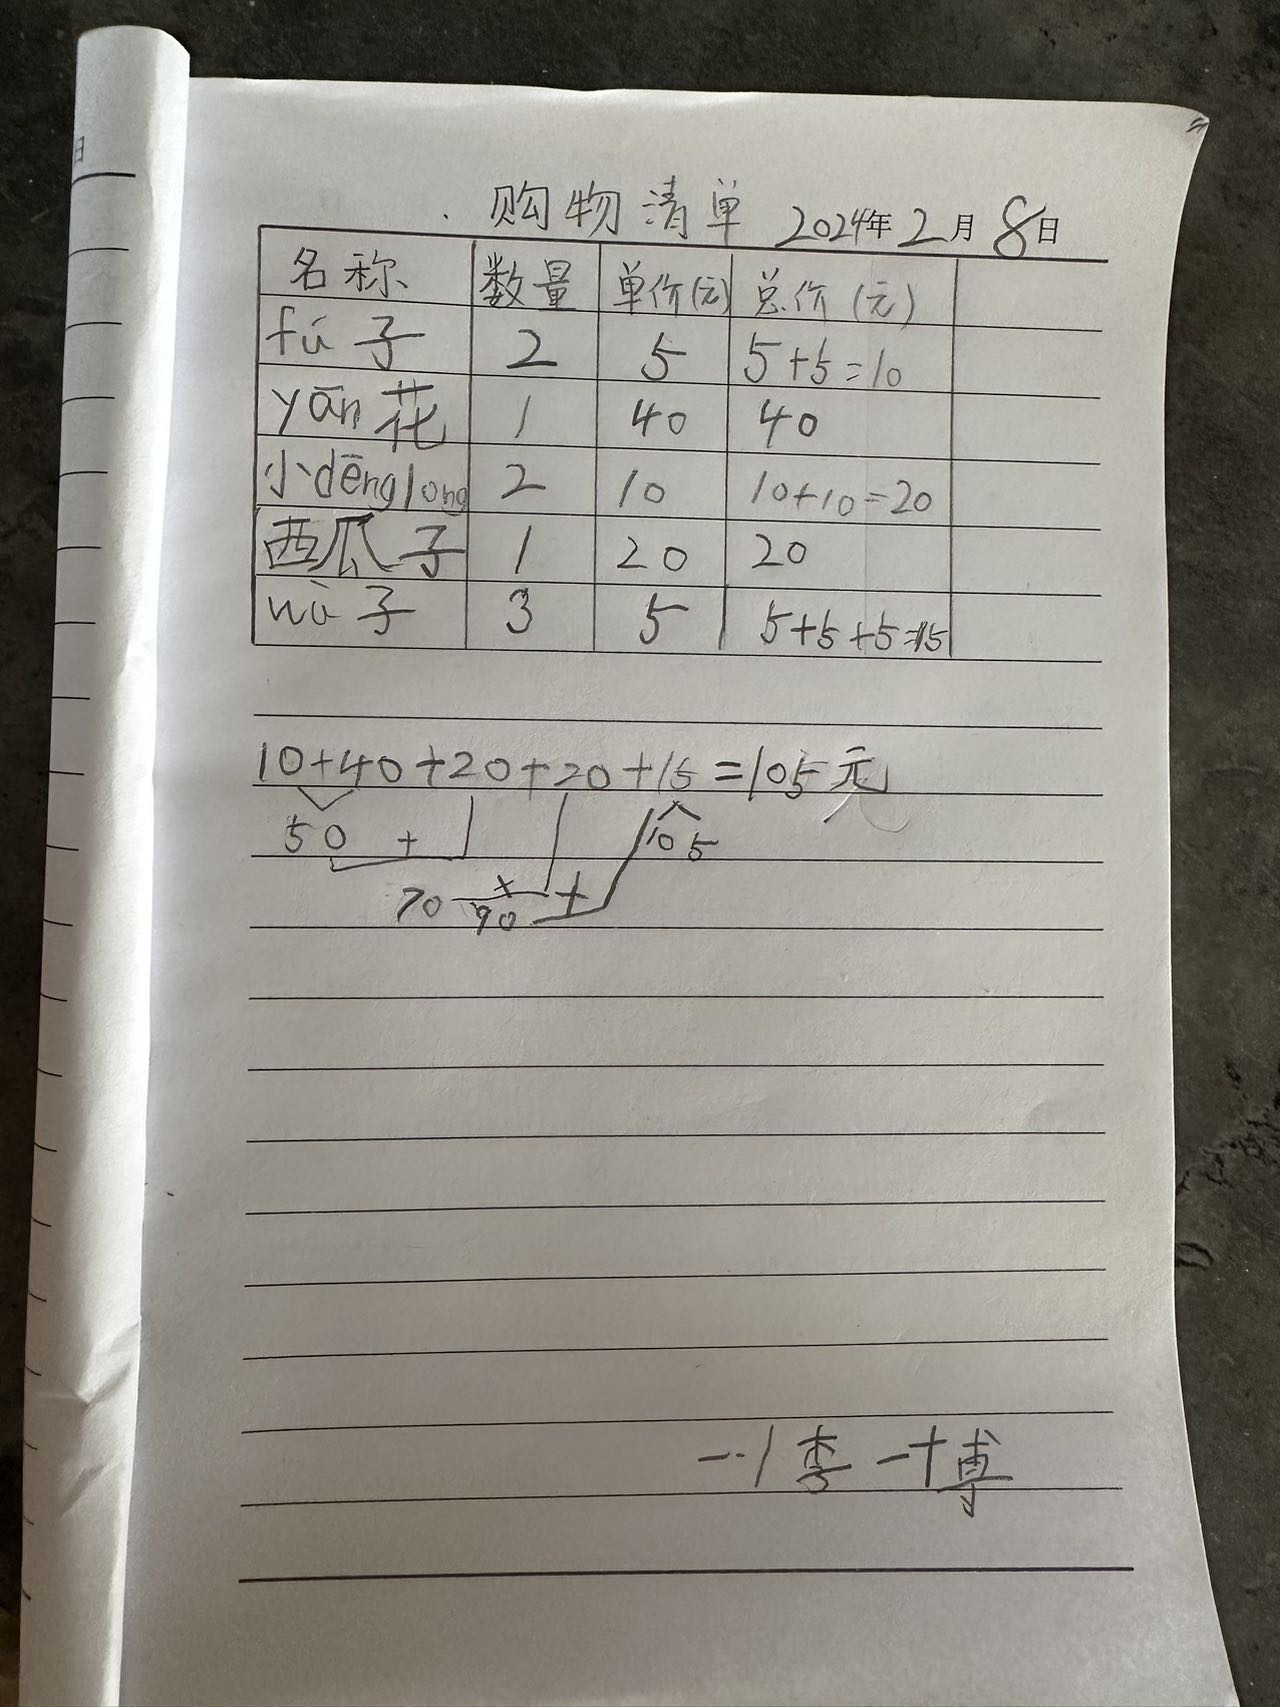 日
购物清单 2024年2月8日
名称 数量 单价(元) 总价(元)
fú子 2 5 5+5=10
yān花 1 40 40
小dēnglong 2 10 10+10=20
西瓜子 1 20 20
wà子 3 5 5+5+5=15
10+40+20+20+15=105元
50 + 10 5
70 + 90 +
一.1 李一博